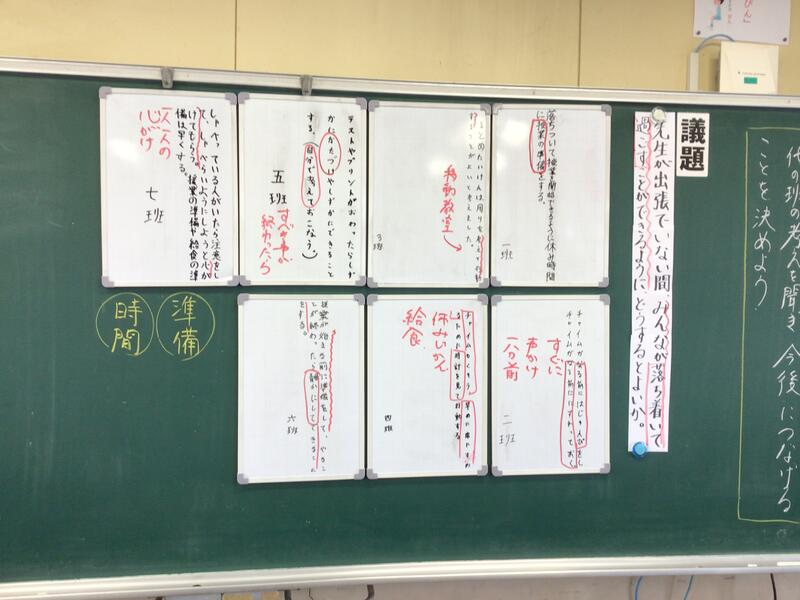 びん」
他の班の考えを聞き、今後につなげる
ことを決めよう
議題
先生が出張でいない間、みんなが落ち着いて
過ごすことができるようにどうするとよいか。
落ちついて授業を開始できるように休み時間
に授業の準備をする。
一班
がよいと考えました。
移動教室
3班
テストやプリントがおわったらしず
かにかたづけやしずかにできること
する。(自分で考えておこなう)
五班
すべき事が
終わったら
しゃべっている人がいたら注意をし
て、しゃべらいようにしようと心が
けてもらう。授業の準備や給食の準
備は早くする。
一人一人の
心がけ
七班
チャイムがなる前にはじゅんびをし
チャイムがなる前にはすわっておく
すぐに
声かけ
一分前
二班
時計を見て行動する
休みじかん
給食
四班
授業が始まる前に準備をして、やるこ
とが終わったら静かにしてできること
をする。
六班
準備
時間